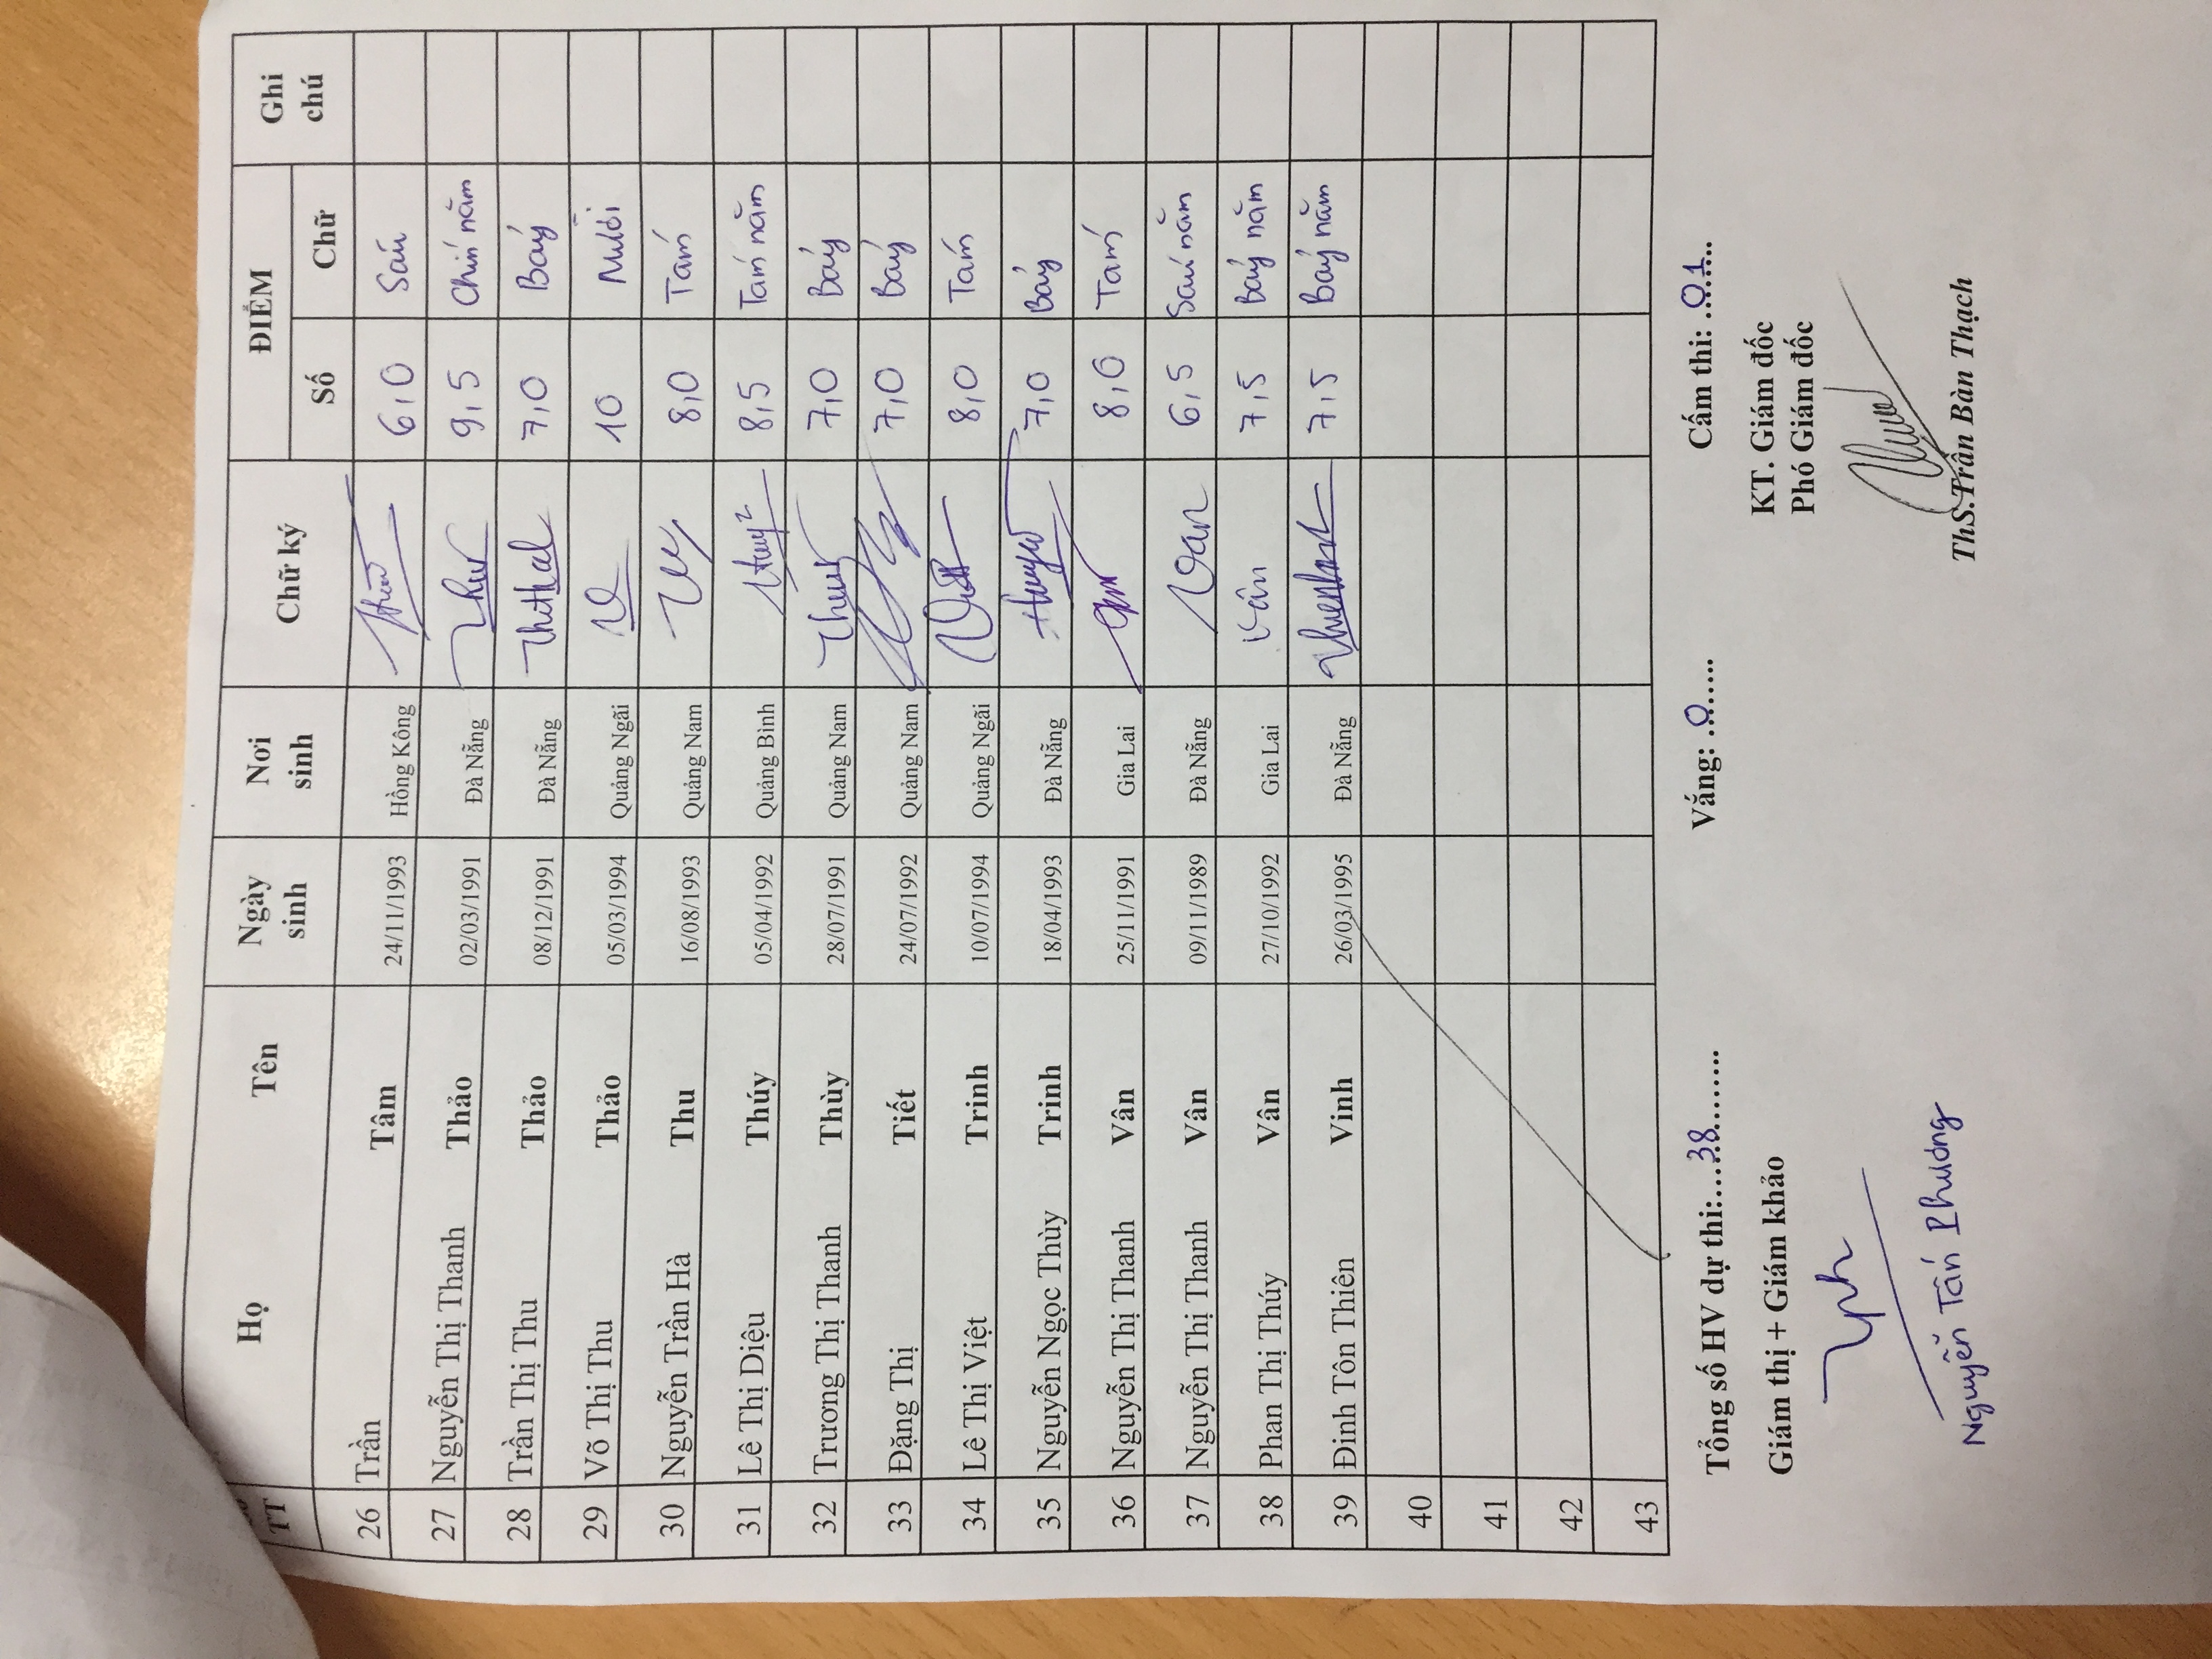 TT Họ Tên Ngày sinh Nơi sinh Chữ ký ĐIỂM Ghi chú
Số Chữ
26 Trần Tâm 24/11/1993 Hồng Kông 6,0 Sáu
27 Nguyễn Thị Thanh Thảo 02/03/1991 Đà Nẵng 9,5 Chín năm
28 Trần Thị Thu Thảo 08/12/1991 Đà Nẵng 7,0 Bảy
29 Võ Thị Thu Thảo 05/03/1994 Quảng Ngãi 10 Mười
30 Nguyễn Trần Hà Thu 16/08/1993 Quảng Nam 8,0 Tám
31 Lê Thị Diệu Thúy 05/04/1992 Quảng Bình 8,5 Tám năm
32 Trương Thị Thanh Thùy 28/07/1991 Quảng Nam 7,0 Bảy
33 Đặng Thị Tiết 24/07/1992 Quảng Nam 7,0 Bảy
34 Lê Thị Việt Trinh 10/07/1994 Quảng Ngãi 8,0 Tám
35 Nguyễn Ngọc Thùy Trinh 18/04/1993 Đà Nẵng 7,0 Bảy
36 Nguyễn Thị Thanh Vân 25/11/1991 Gia Lai 8,0 Tám
37 Nguyễn Thị Thanh Vân 09/11/1989 Đà Nẵng Van 6,5 Sáu năm
38 Phan Thị Thúy Vân 27/10/1992 Gia Lai Vân 7,5 Bảy năm
39 Đinh Tôn Thiên Vinh 26/03/1995 Đà Nẵng 7,5 Bảy năm
40
41
42
43
Tổng số HV dự thi:....38.......... Vắng: ..0..... Cấm thi: ..01....
Giám thị + Giám khảo KT. Giám đốc
Phó Giám đốc
Nguyễn Tấn Phương ThS.Trần Bàn Thạch